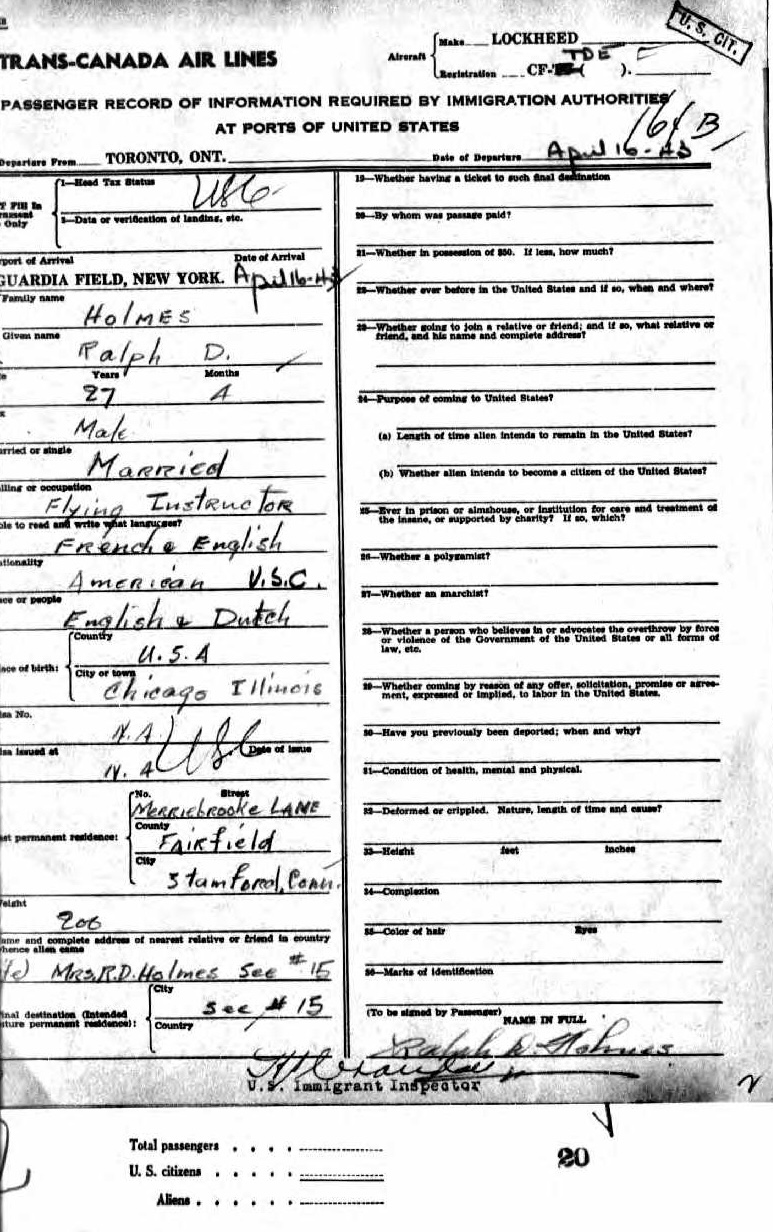 Make LOCKHEED
U. S. CIT.
TRANS-CANADA AIR LINES
Aircraft
TDE
Registration CF- ( ).
PASSENGER RECORD OF INFORMATION REQUIRED BY IMMIGRATION AUTHORITIES
AT PORTS OF UNITED STATES
B
Departure From TORONTO, ONT. Date of Departure April 16-43
1—Head Tax Status
USC
T Fill in
Only
2—Data or verification of landing, etc.
port of Arrival Date of Arrival
GUARDIA FIELD, NEW YORK. April 16-43
Family name
Holmes
Given name
Ralph D.
Years Months
27 4
Male
arried or single
Married
lling or occupation
Flying Instructor
ble to read and write what languages?
French & English
ationality
American U.S.C.
ace or people
English & Dutch
Country
U.S.A
ace of birth:
City or town
Chicago Illinois
isa No.
N.A
USC
isa issued at Date of issue
N.A
No. Street
Merriebrooke Lane
County
st permanent residence:
Fairfield
City
Stamford, Conn.
eight
200
ame and complete address of nearest relative or friend in country
whence alien came
fe) Mrs. R.D. Holmes See #15
City
See #15
inal destination (Intended
uture permanent residence):
Country
19—Whether having a ticket to such final destination
20—By whom was passage paid?
21—Whether in possession of $50. If less, how much?
22—Whether ever before in the United States and if so, when and where?
23—Whether going to join a relative or friend; and if so, what relative or
friend, and his name and complete address?
24—Purpose of coming to United States?
(a) Length of time alien intends to remain in the United States?
(b) Whether alien intends to become a citizen of the United States?
25—Ever in prison or almshouse, or institution for care and treatment of
the insane, or supported by charity? If so, which?
26—Whether a polygamist?
27—Whether an anarchist?
28—Whether a person who believes in or advocates the overthrow by force
or violence of the Government of the United States or all forms of
law, etc.
29—Whether coming by reason of any offer, solicitation, promise or agree-
ment, expressed or implied, to labor in the United States.
30—Have you previously been deported; when and why?
31—Condition of health, mental and physical.
32—Deformed or crippled. Nature, length of time and cause?
33—Height feet inches
34—Complexion
35—Color of hair Eyes
36—Marks of identification
(To be signed by Passenger)
NAME IN FULL
Ralph D. Holmes
U.S. Immigrant Inspector
Total passengers
20
U. S. citizens
Aliens